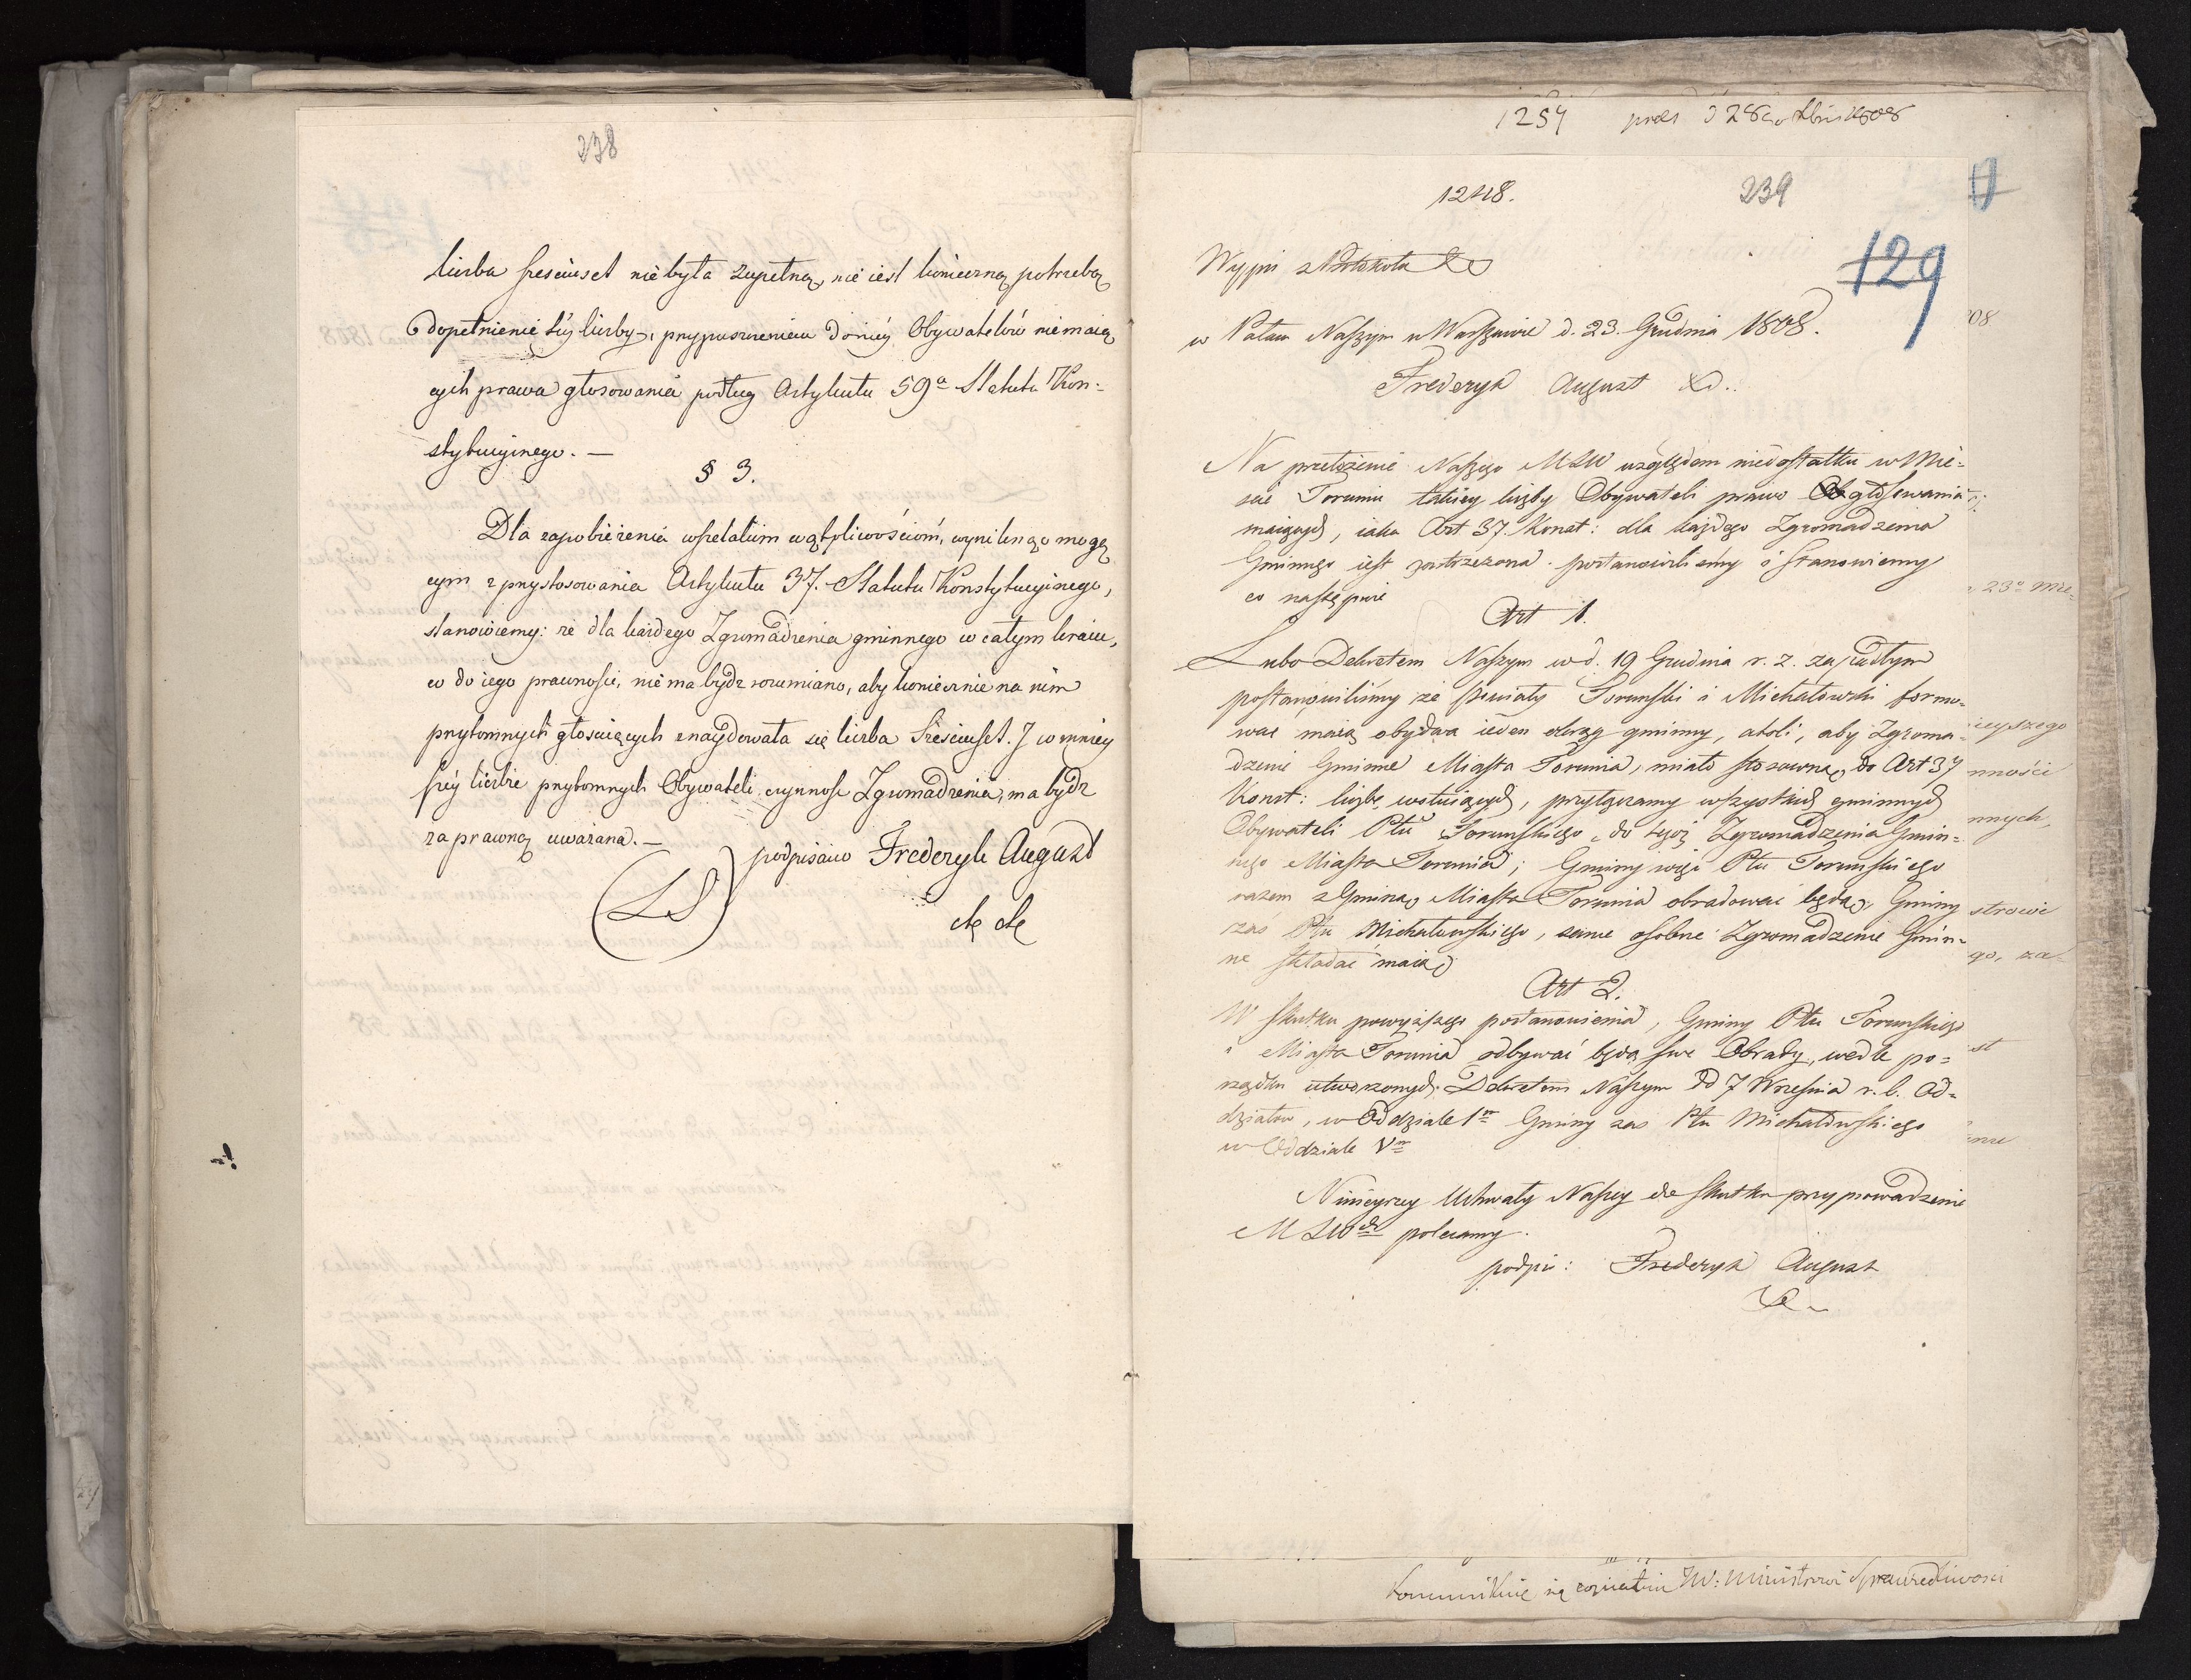 238
liczba sześciuset nie była zupełną, nie iest konieczną potrzebą
dopełnienie téy liczby, przypuszczeniem do niéy Obywatelów niemaią
cych prawa głosowania podług Artykułu 59º Statutu Kon-
stytucyinego. —
§ 3.
Dla zapobieżenia wszelakim wątpliwościom, wyniknąć mogą
cym z przystosowania Artykułu 37. Statutu Konstytucyinego,
stanowiemy: że dla każdego Zgromadzenia gminnego w całym kraiu,
co do iego prawności, nie ma bydź rozumiano, aby koniecznie na nim
przytomnych głosuiących znaydowała się liczba Sześciuset. I w mniey
széy liczbie przytomnych Obywateli czynność Zgromadzenia, ma bydź
za prawną uważana. —
podpisano Frederyk August
(LS)
etc etc
1254 prez d 28 1808
1248.
239
129
Wypis z Protokołu &c
w Pałacu Naszym w Warszawie d. 23. Grudnia 1808.
Frederyk August &c..
Na przełożenie Naszego MSW względem niedostatku w Mie-
ście Toruniu takiey liczby Obywateli prawo głosowania
maiących, iaka Art 37. Konst: dla każdego Zgromadzenia
Gminnego iest zastrzeżona. postanowiliśmy i Stanowiemy
co następuie
Art 1.
Lubo Dekretem Naszym w d. 19 Grudnia r. z. zapadłym
postanowiliśmy że powiaty Toruński i Michałowski formo-
wać maią obydwa ieden okrąg gminny, atoli, aby Zgroma-
dzenie Gminne Miasta Torunia, miało stosowną do Art 37
Konst: liczbę wotuiących, przyłączamy wszystkich gminnych
Obywateli Ptu Toruńskiego do tegoż Zgromadzenia Gmin-
nego Miasta Torunia; Gminy więc Ptu Toruńskiego
razem z Gminą Miasta Torunia obradować będą, Gminy
zaś Ptu Michałowskiego, same osobne Zgromadzenie Gmin-
ne składać maią
Art 2.
W skutku powyższego postanowienia, Gminy Ptu Toruńskiego
i Miasta Torunia odbywać będą swe Obrady, wedle po-
rządku utworzonych Dekretem Naszym d 7 Września r. b. Od-
działów, w Oddziale 1m Gminy zas Ptu Michałowskiego
w Oddziale Vm
Ninieyszey Uchwały Naszey do skutku przyprowadzenie
MSW polecamy.
podpis: Frederyk August
&c
08
23º Mie-
ieyszego
nności
nnych,
strowi
go, za-
st
Komunikuie się JW: Ministrowi Sprawiedliwości